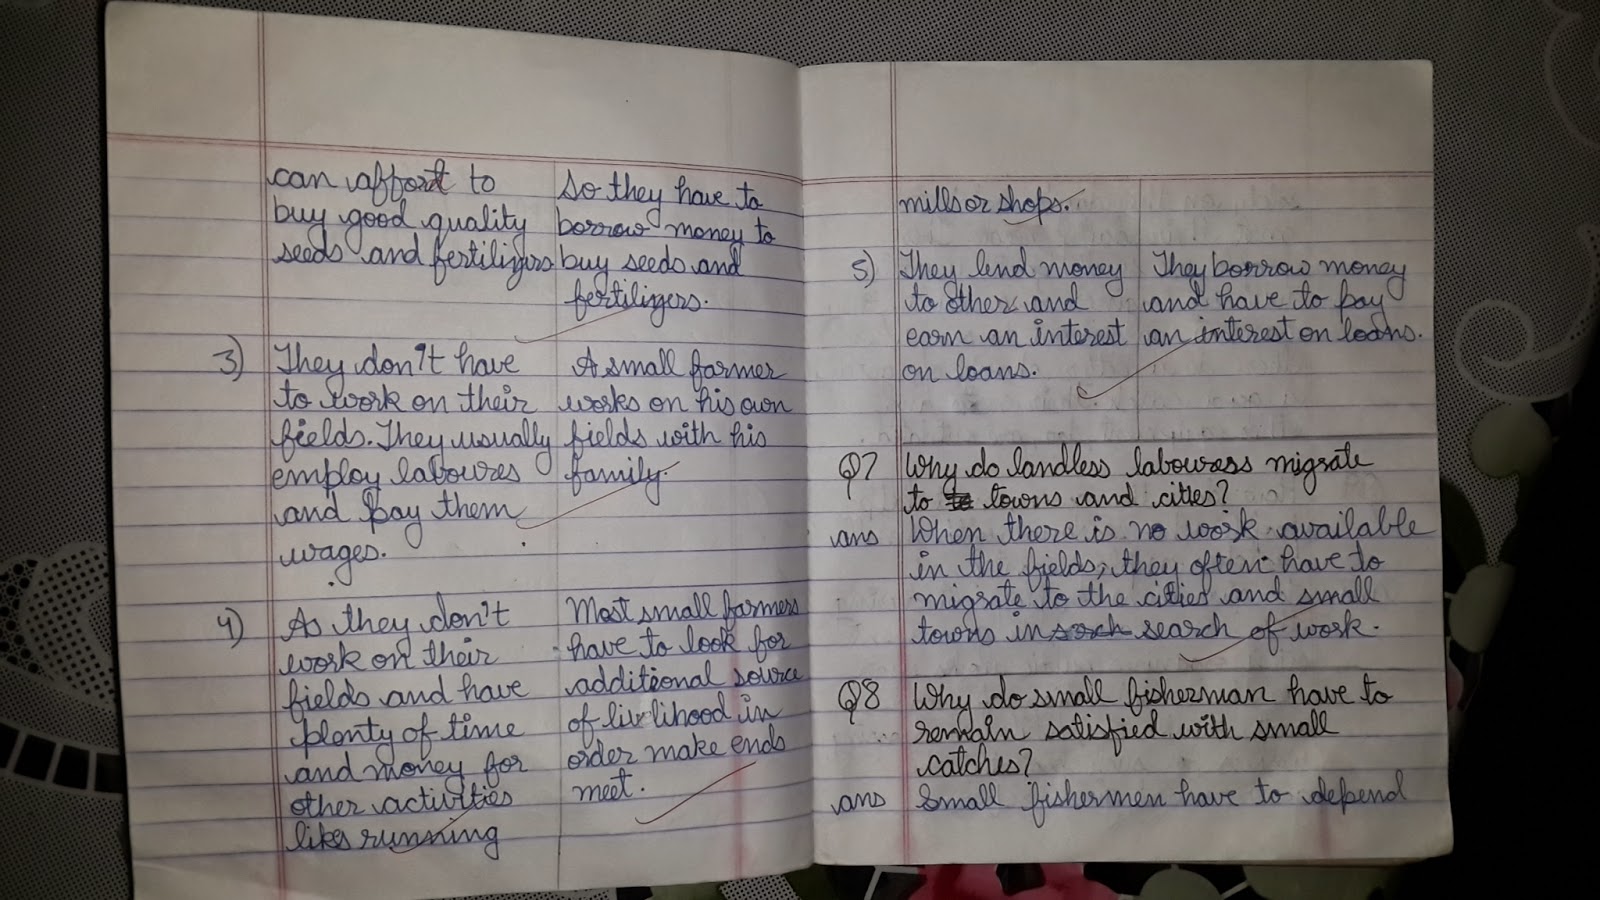 can affort to
buy good quality
seeds and fertilizers
So they have to
borrow money to
buy seeds and
fertilizers.
3) They don't have
to work on their
fields. They usually
employ laboures
and pay them
wages.
A small farmer
works on his own
fields with his
family.
4) As they don't
work on their
fields and have
plenty of time
and money for
other activities
like running
Most small farmers
have to look for
additional source
of livlihood in
order make ends
meet.
mills or shops.
5) They lend money
to other and
earn an interest
on loans.
They borrow money
and have to pay
an interest on loans.
Q7 Why do landless labourers migrate
to towns and cities?
ans When there is no work available
in the fields, they often have to
migrate to the cities and small
towns in search of work.
Q8 Why do small fisherman have to
remain satisfied with small
catches?
ans Small fishermen have to depend